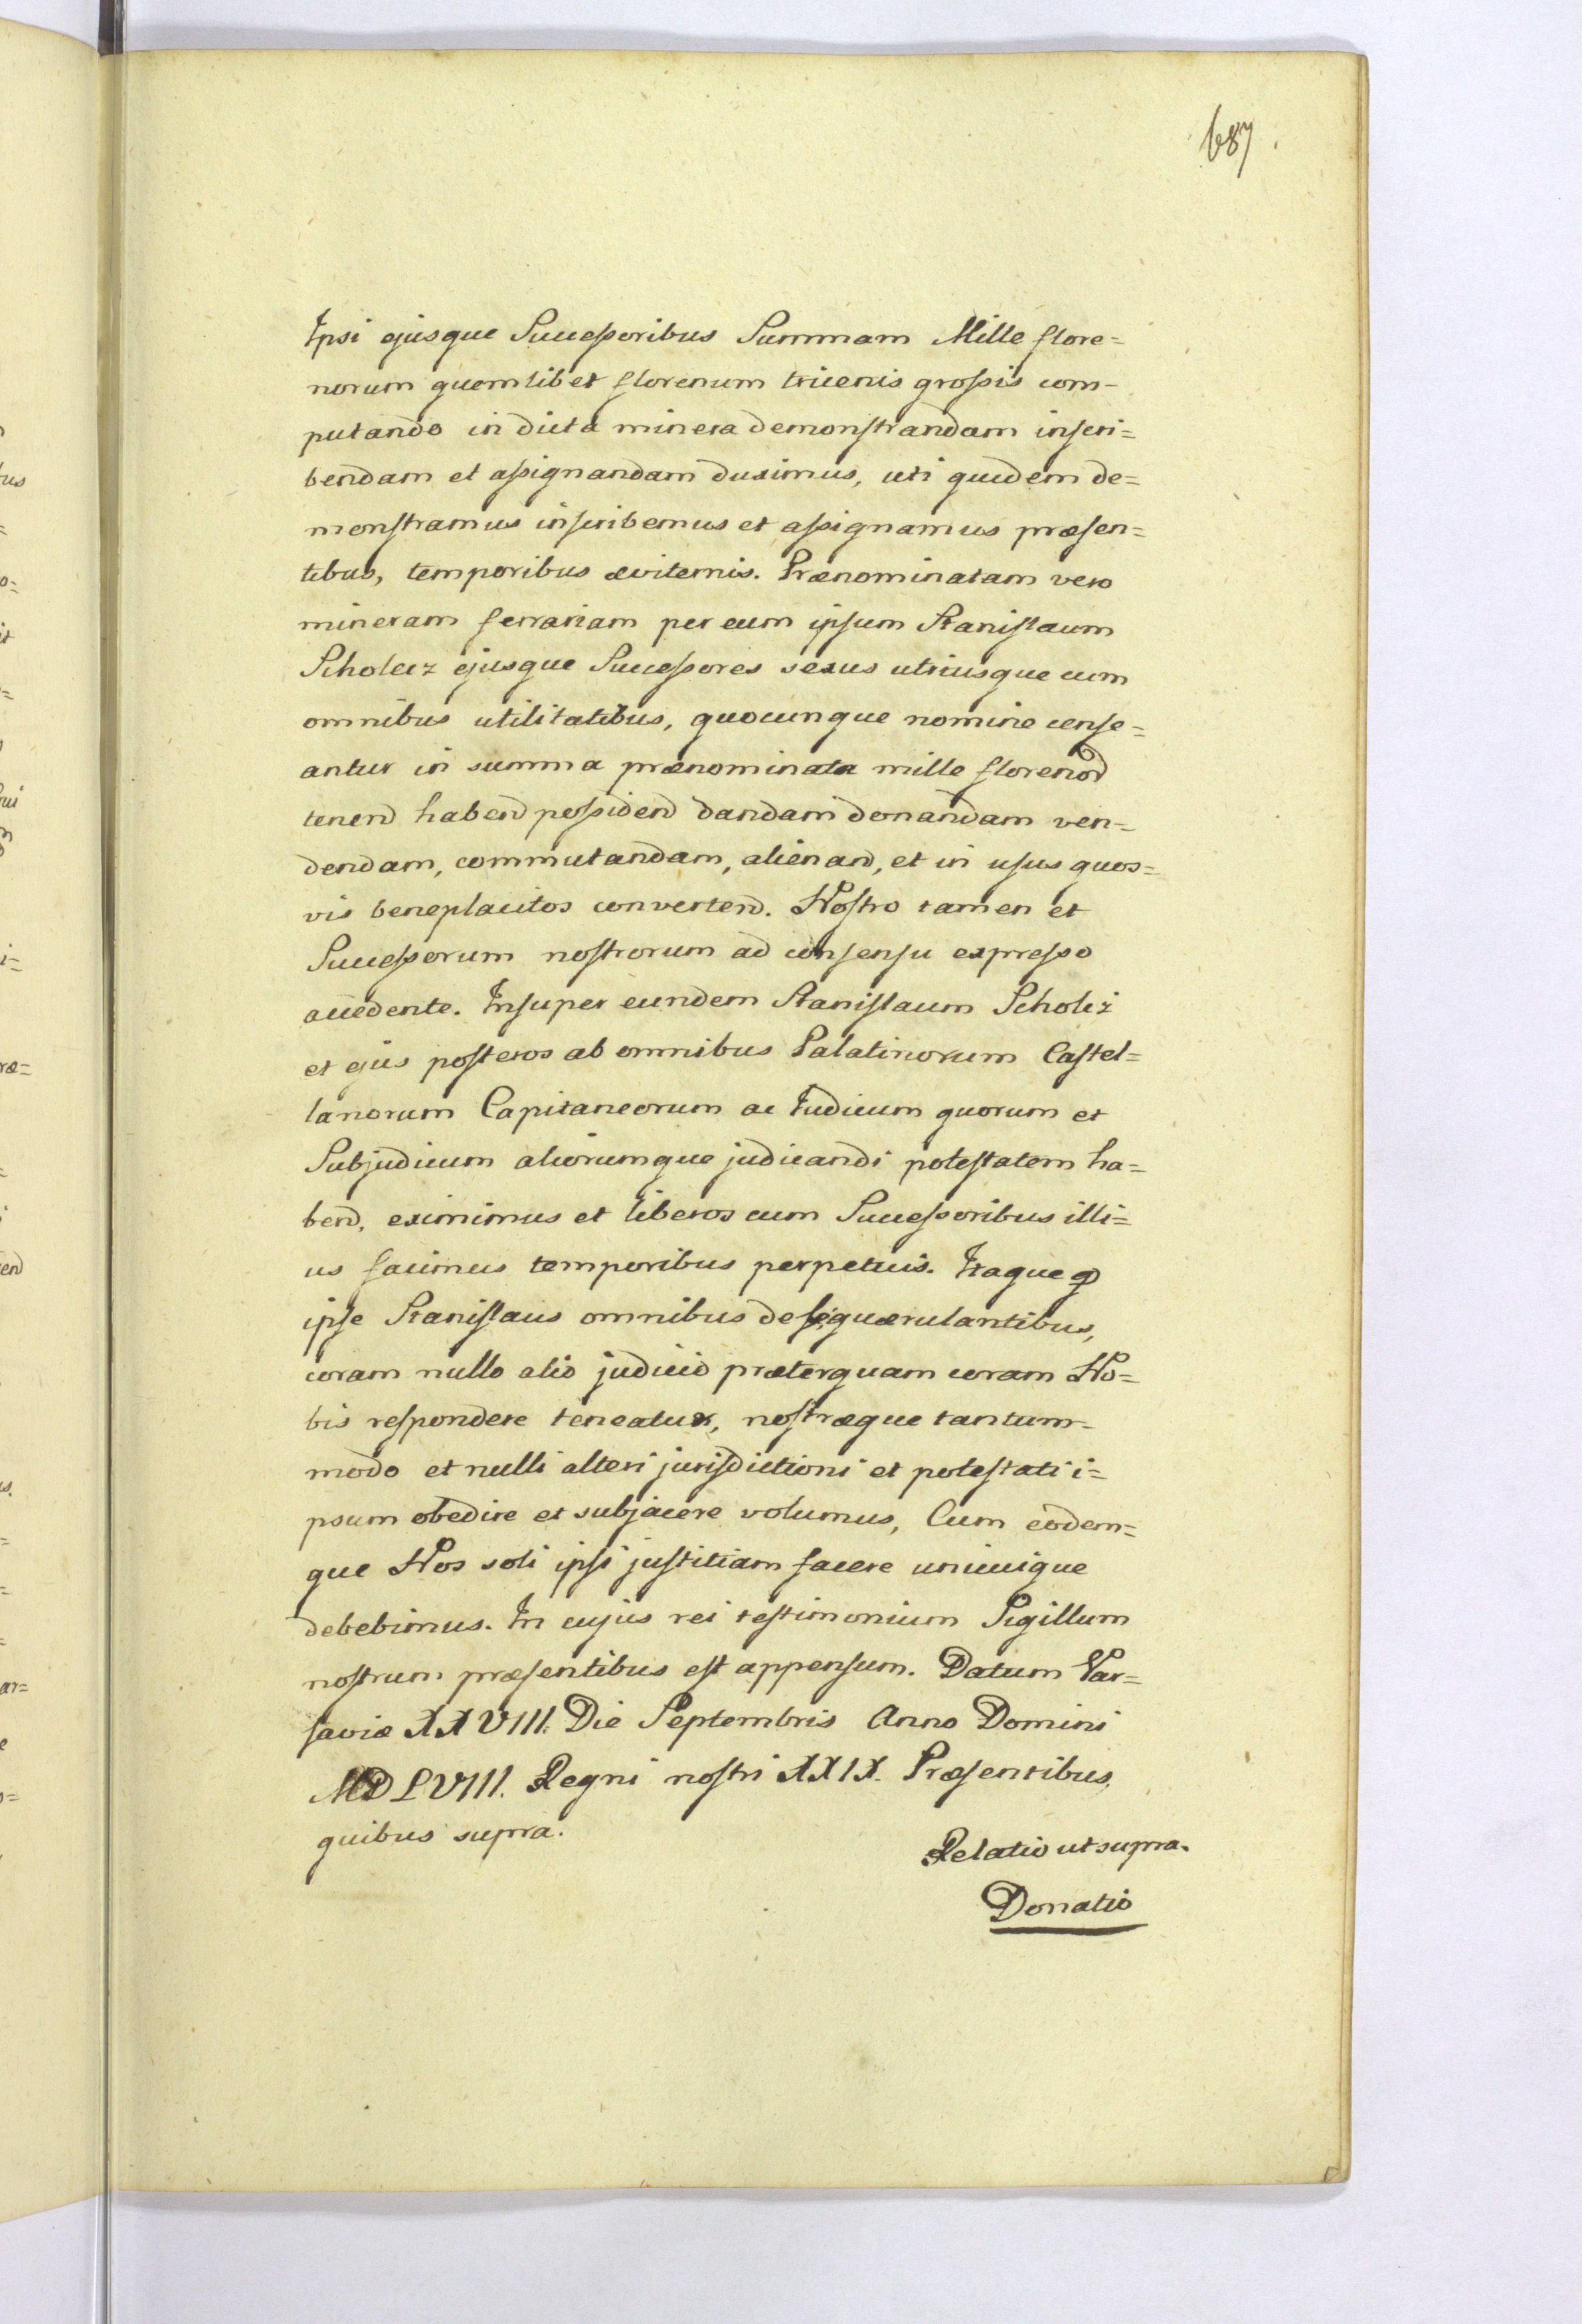 687.
Ipsi ejusque Successoribus Summam Mille flore=
norum quemlibet florenum tricenis grossis com-
putando in dicta minera demonstrandam inscri=
bendam et assignandam duximus, uti quidem de=
monstramus inscribemus et assignamus præsen=
tibus, temporibus æviternis. Prænominatam vero
mineram ferrariam per eum ipsum Stanislaum
Scholcz ejusque Successores sexus utriusque cum
omnibus utilitatibus, quocunque nomine cense=
antur in summa prænominata mille florenor
tenend habend possidend dandam donandam ven=
dendam, commutandam, alienand, et in usus quos=
vis beneplacitos convertend. Nostro tamen et
Successorum nostrorum ad consensu expresso
accedente. Insuper eundem Stanislaum Scholcz
et ejus posteros ab omnibus Palatinorum Castel=
lanorum Capitaneorum ac Judicum quorum et
Subjudicum aliorumque judicandi potestatem ha=
bend, eximimus et liberos cum Successoribus illi=
us facimus temporibus perpetuis. Itaque
ipse Stanislaus omnibus de se quærulantibus,
coram nullo alio judicio præterquam coram No=
bis respondere teneatur, nostræque tantum-
modo et nulli alteri jurisdictioni et potestati i=
psum obedire et subjacere volumus, Cum eodem=
que Nos soli ipsi justitiam facere unicuique
debebimus. In cujus rei testimonium Sigillum
nostrum præsentibus est appensum. Datum Var=
saviæ XXVIII. Die Septembris Anno Domini
MDLVIII. Regni nostri XXIX. Præsentibus,
quibus supra.
Relatio ut supra.
Donatio